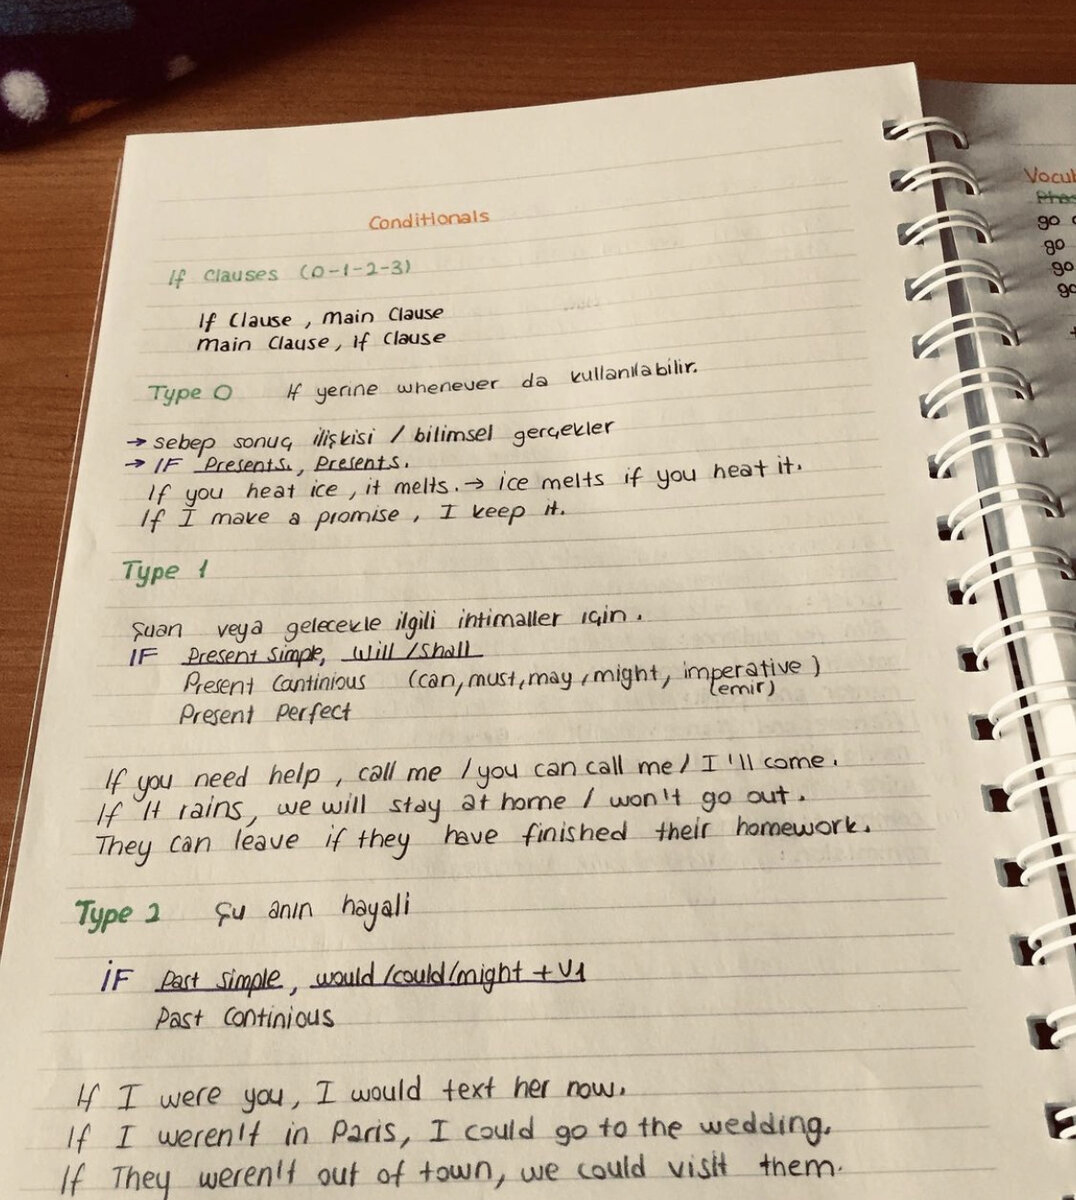 Conditionals
If Clauses (0-1-2-3)
If Clause , Main Clause
Main Clause, if Clause
Type 0 If yerine whenever da kullanılabilir.
→ sebep sonuç ilişkisi / bilimsel gerçekler
→ IF Present s., Present s.
If you heat ice , it melts. → ice melts if you heat it.
If I make a promise , I keep it.
Type 1
Şuan veya gelecekle ilgili ihtimaller için .
IF Present simple, will / shall
Present Cantinious (can, must, may , might, imperative )
(emir)
Present Perfect
If you need help , call me / you can call me / I'll come .
If It rains, we will stay at home / won't go out .
They can leave if they have finished their homework.
Type 2 Şu anın hayali
İF Past simple, would /could/might + V1
Past Continious
If I were you, I would text her now.
If I weren't in Paris, I could go to the wedding.
If They weren't out of town, we could visit them.
go
go
go